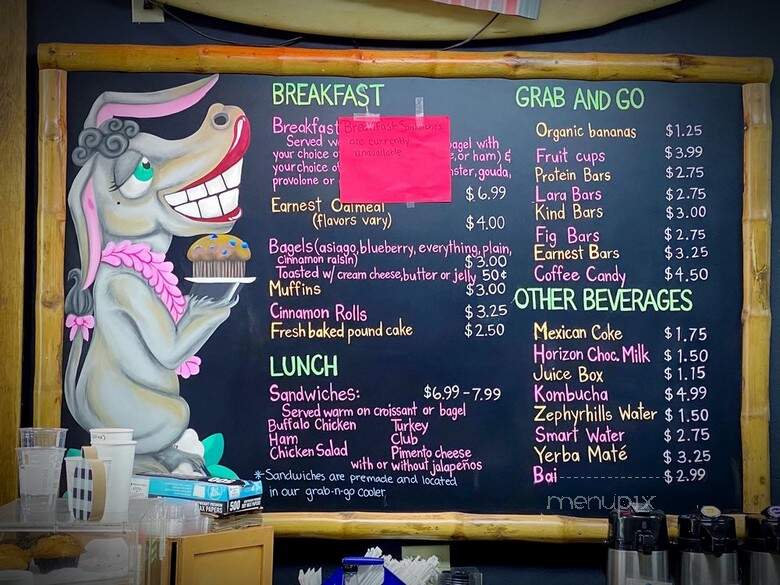 BREAKFAST
Breakfast
Served
bagel with
your choice o
or ham) &
your choice of
gouda,
provolone or
$6.99
Breakfast Sandwiches
are currently
unavailable
Earnest Oatmeal
(flavors vary) $4.00
Bagels (asiago, blueberry, everything, plain,
cinnamon raisin) $3.00
Toasted w/ cream cheese, butter or jelly 50¢
Muffins $3.00
Cinnamon Rolls $3.25
Fresh baked pound cake $2.50
LUNCH
Sandwiches: $6.99-7.99
Served warm on croissant or bagel
Buffalo Chicken Turkey
Ham Club
Chicken Salad Pimento cheese
with or without jalapeños
*Sandwiches are premade and located
in our grab-n-go cooler
GRAB AND GO
Organic bananas $1.25
Fruit cups $3.99
Protein Bars $2.75
Lara Bars $2.75
Kind Bars $3.00
Fig Bars $2.75
Earnest Bars $3.25
Coffee Candy $4.50
OTHER BEVERAGES
Mexican Coke $1.75
Horizon Choc. Milk $1.50
Juice Box $1.15
Kombucha $4.99
Zephyrhills Water $1.50
Smart Water $2.75
Yerba Maté $3.25
Bai $2.99
menupix
AX PAPERS 500